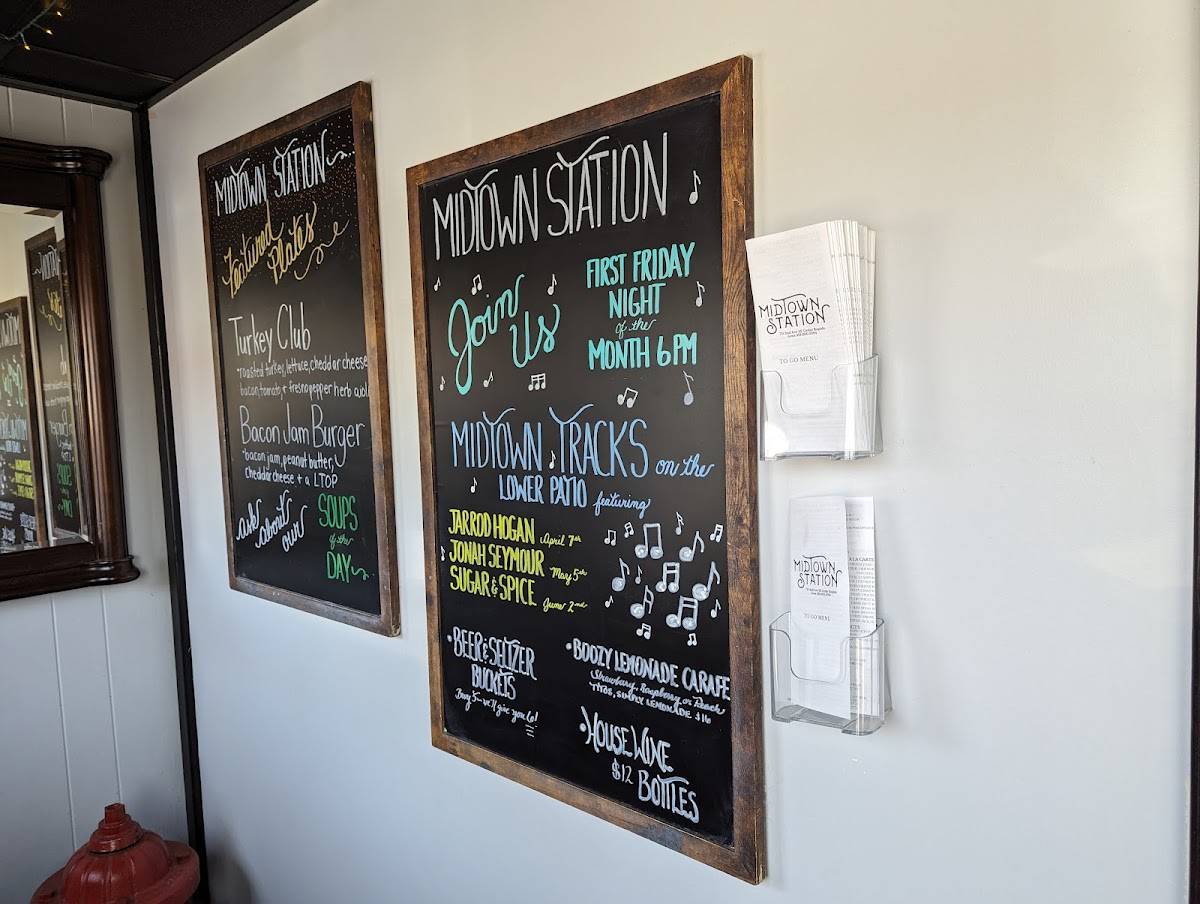 MIDTOWN STATION
Featured
Plates
Turkey Club
roasted turkey, lettuce, cheddar cheese
bacon, tomato, + fresno pepper herb aioli
Bacon Jam Burger
bacon jam, peanut butter,
cheddar cheese + a LTOP
ask about our
SOUPS
of the
DAY
MIDTOWN STATION
Join
Us
FIRST FRIDAY
NIGHT
of the
MONTH 6PM
MIDTOWN TRACKS on the
LOWER PATIO featuring
JARROD HOGAN April 7th
JONAH SEYMOUR May 5th
SUGAR & SPICE June 2nd
•BEER & SELTZER
BUCKETS
Buy 5-we'll give you 6!
•BOOZY LEMONADE CARAFE
Strawberry, Raspberry, or Peach
TITOS, SIMPLY LEMONADE $16
•HOUSE WINE
$12 BOTTLES
MIDTOWN
STATION
TO GO MENU
MIDTOWN
STATION
TO GO MENU
A LA CARTE